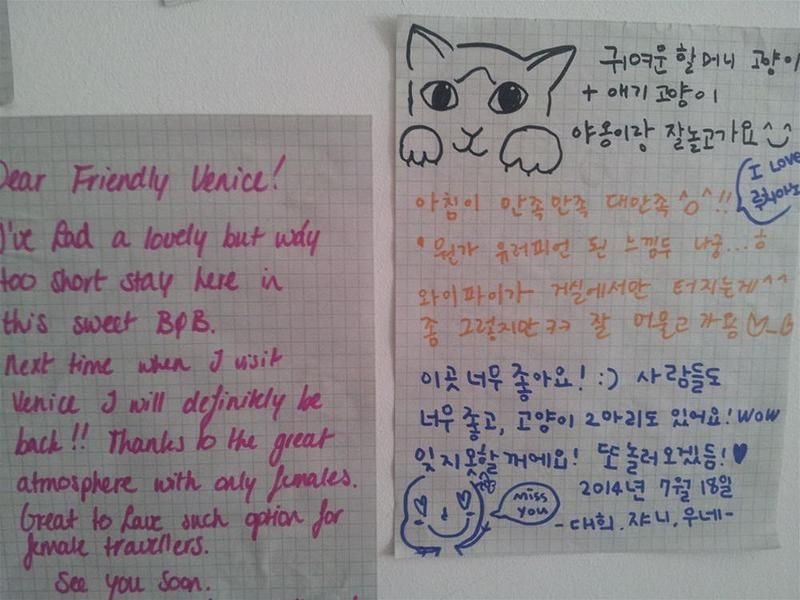 Dear Friendly Venice!
I've had a lovely but way
too short stay here in
this sweet B&B.
Next time when I visit
Venice I will definitely be
back!! Thanks to the great
atmosphere with only females.
Great to have such option for
female travellers.
See you soon.
귀여운 할머니 고양이
+ 애기 고양이
야옹이랑 잘놀고가요^^
I LOVE
루치아노
아침이 만족만족 대만족 ^o^!!
• 뭔가 유러피언 된 느낌두 나궁...ㅎ
와이파이가 거실에서만 터지는게^^
좀 그렇지만ㅋㅋ 잘 머물고 가용
이곳 너무 좋아요! :) 사람들도
너무 좋고, 고양이 2마리도 있어요! WOW
잊지 못할 꺼에요! 또 놀러 오겠듬! ♥
miss
you
2014년 7월 18일
-대희. 쟈니, 우네-